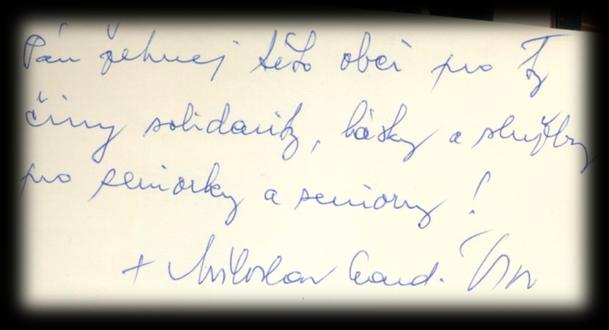 Pán žehnej této obci pro ty
činy solidarity, lásky a služby
pro seniorky a seniory!
+ Miloslav Card. Vlk